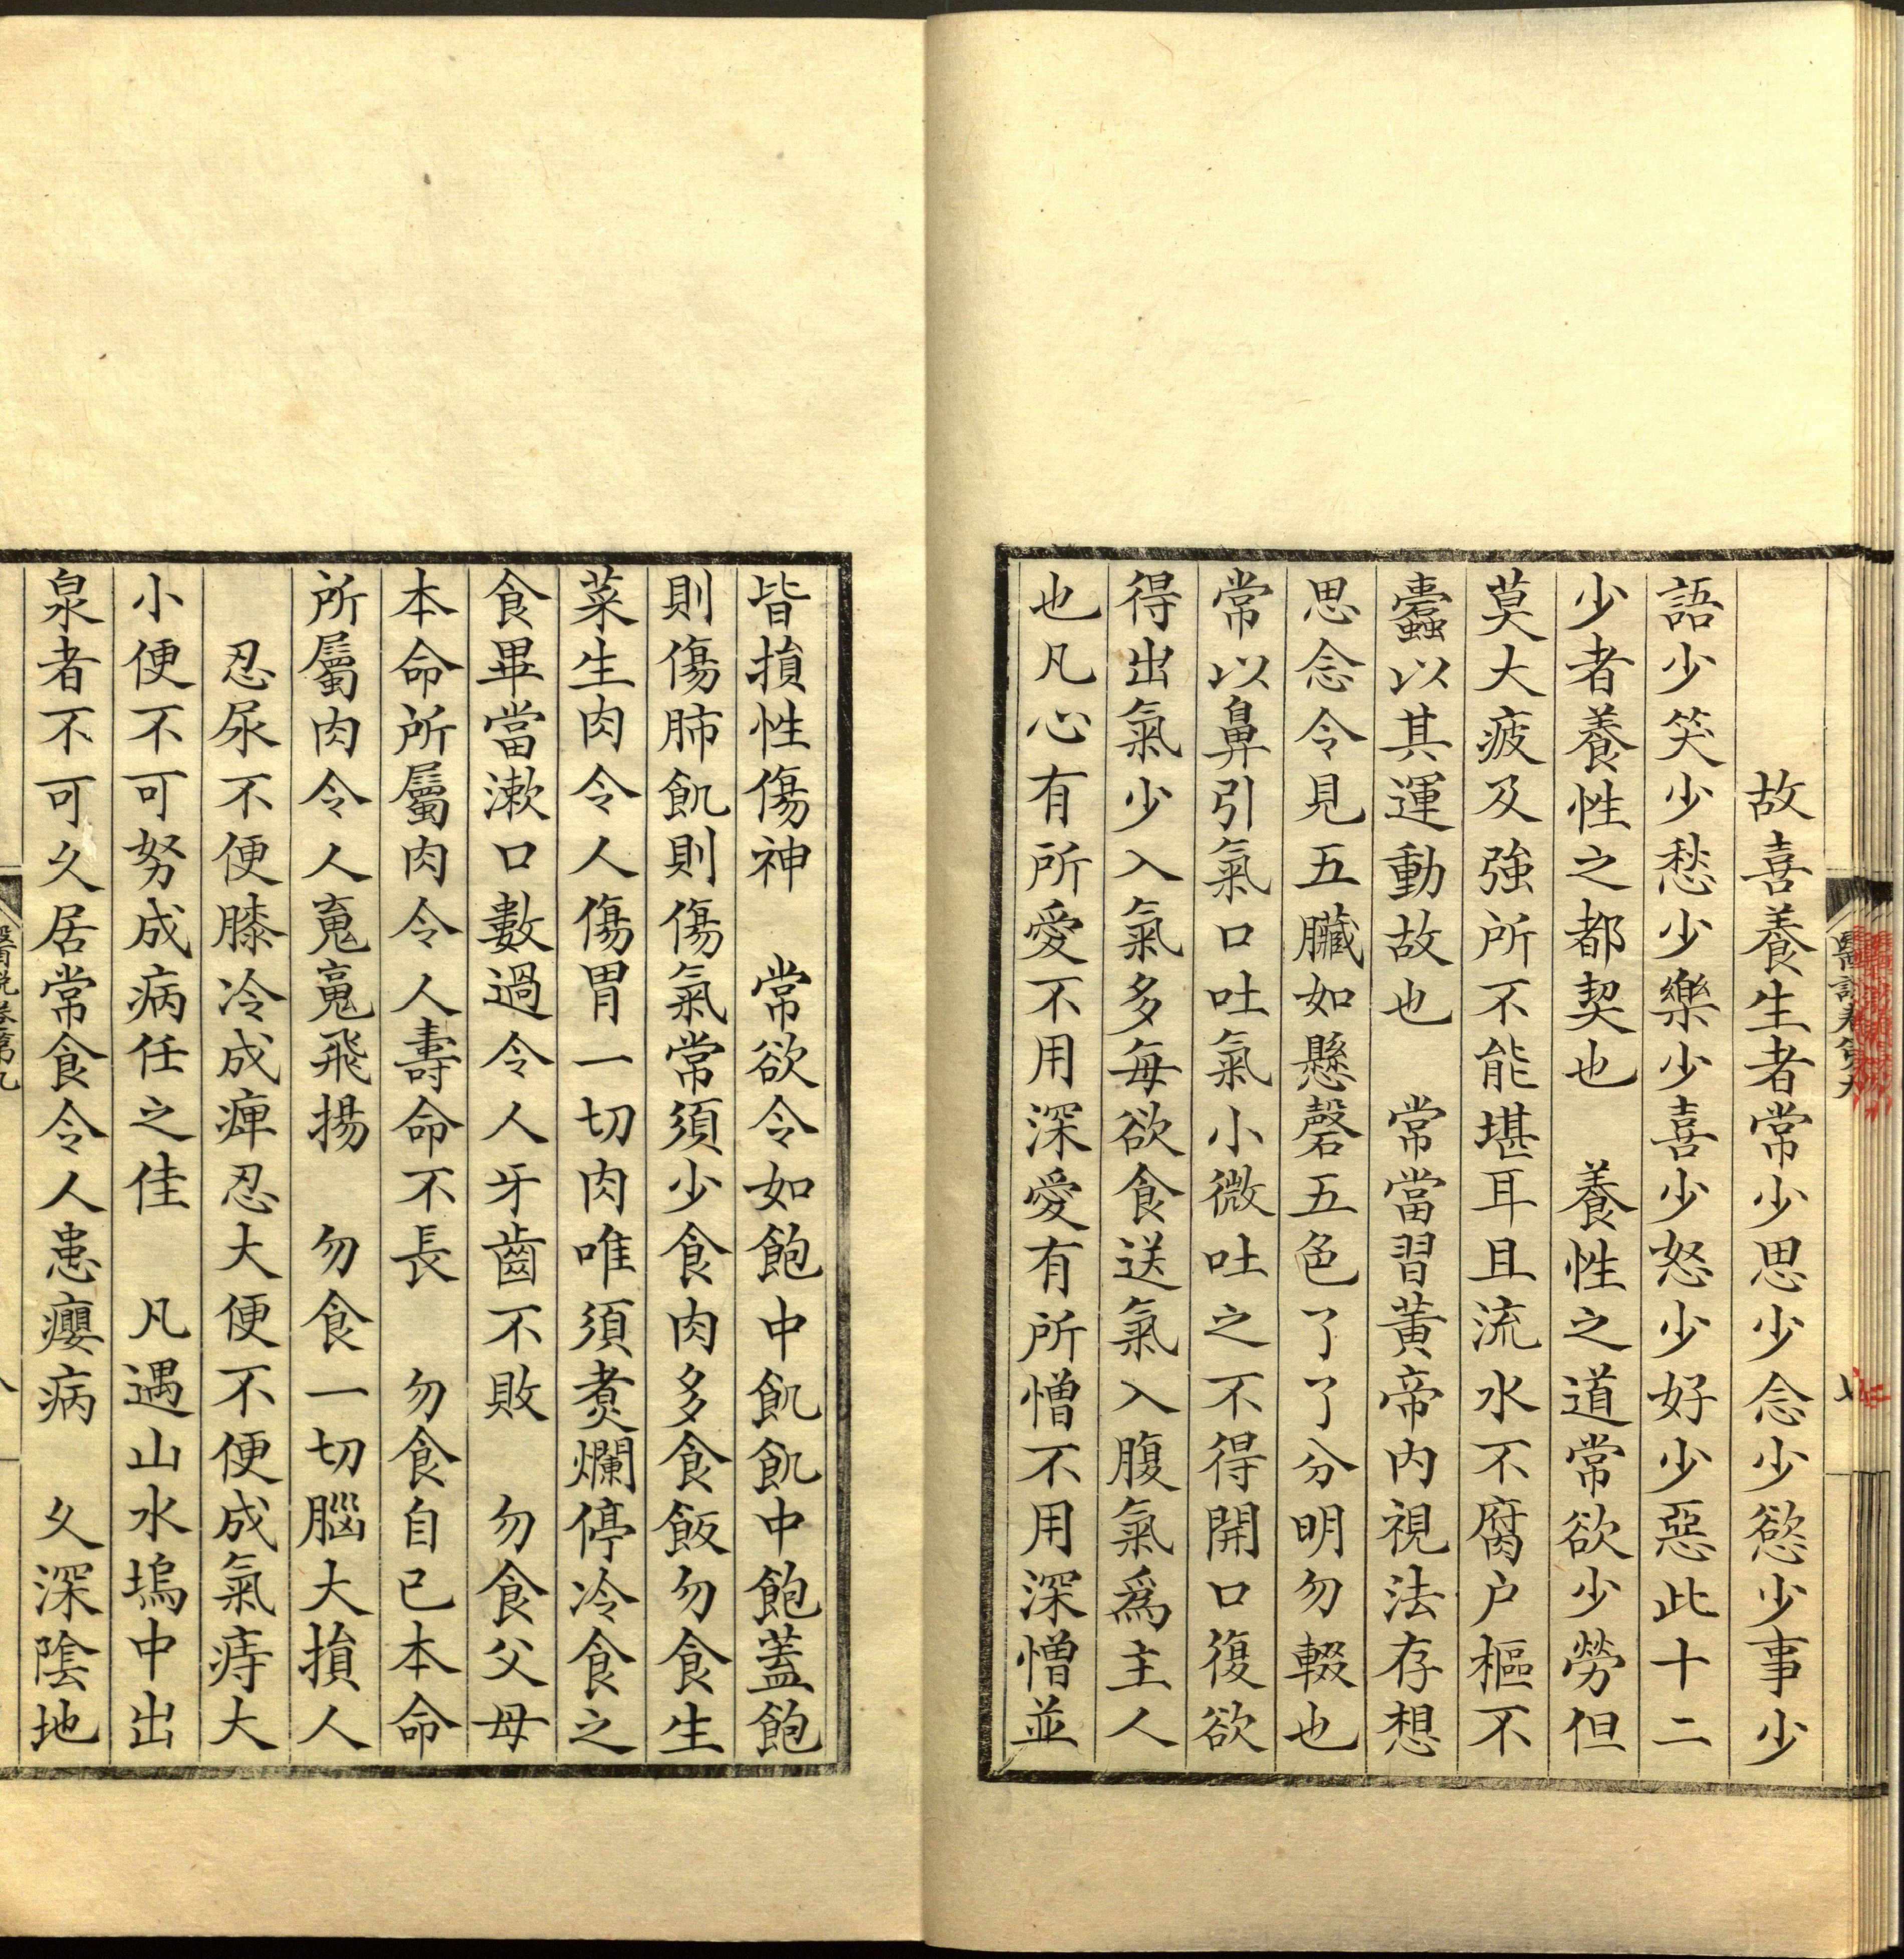 故喜養生者常少思少念少慾少事少
語少笑少愁少樂少喜少怒少好少惡此十二
少者養性之都契也　養性之道常欲少勞但
莫大疲及強所不能堪耳且流水不腐户樞不
蠹以其運動故也　常當習黄帝内視法存想
思念令見五臟如懸磬五色了了分明勿輟也
常以鼻引氣口吐氣小微吐之不得開口復欲
得出氣少入氣多每欲食送氣入腹氣爲主人
也凡心有所愛不用深愛有所憎不用深憎並
皆損性傷神　常欲令如飽中飢飢中飽蓋飽
則傷肺飢則傷氣常須少食肉多食飯勿食生
菜生肉令人傷胃一切肉唯須煑爛停冷食之
食畢當漱口數過令人牙齒不敗　勿食父母
本命所屬肉令人壽命不長　勿食自已本命
所屬肉令人䰟䰟飛揚　勿食一切腦大損人
忍尿不便膝冷成痺忍大便不便成氣痔大
小便不可努成病任之佳　凡遇山水塢中出
泉者不可久居常食令人患癭病　久深陰地
醫説卷第九